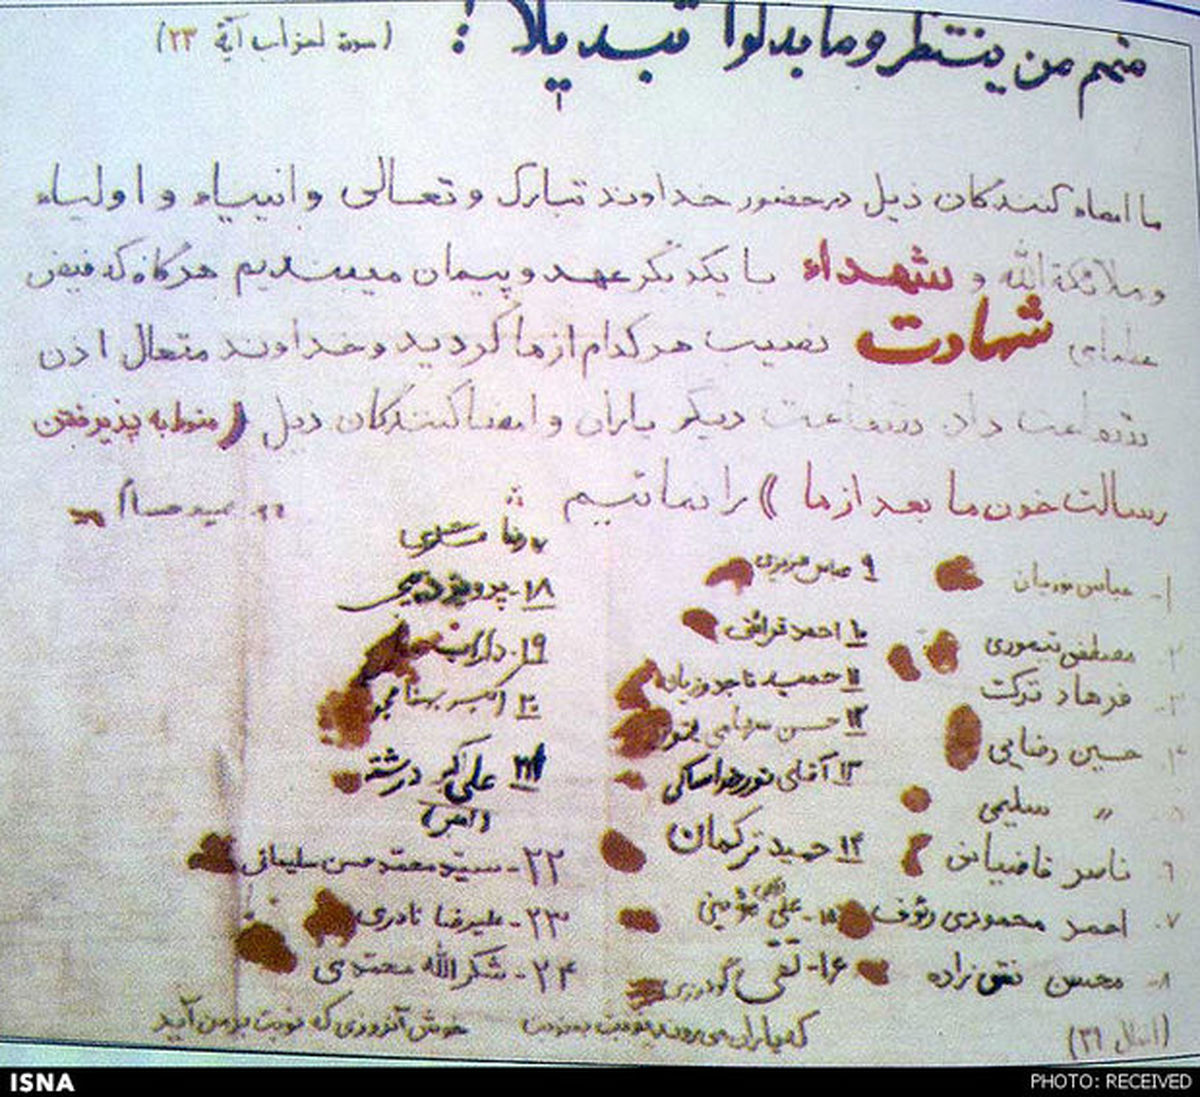 منهم من ینتظر و ما بدلوا تبدیلا! (سورة احزاب آیة ۲۳)
ما امضاء کنندگان ذیل در حضور خداوند تبارک و تعالی و انبیاء و اولیاء
و ملائکة الله و شهداء با یکدیگر عهد و پیمان میبندیم هرگاه که فیض
عظمای شهادت نصیب هر کدام از ما گردید و خداوند متعال اذن
شفاعت داد. شفاعت دیگر یاران و امضا کنندگان ذیل (منوط به پذیرفتن
رسالت خون ما بعد از ما) را نمائیم
۱- عباس نوریان
۲- مصطفی تیموری
۳- فرهاد ترکت
۴- حسین رضایی
" سلیمی
۶- ناصر قاضیانی
۷- احمد محمودی رئوف
۸- محسن نقی زاده
(انفال ۳۹)
۹ عباس
۱۰ احمد قرائتی
۱۱ حمید تاجدوزیان
۱۲ حسن سهامی
۱۳ آقای نوردخواساکی
۱۴ حمید ترکمان
۱۵- علی مؤمنی
۱۶- تقی گودرزی
رضا
۱۸- پرویز
۱۹- داراب
۲۰ اکبر
۲۱ علی اکبر درشته
۲۲- سید محمد حسن سلیمانی
۲۳- علیرضا نادری
۲۴- شکرالله محمدی
که یاران می روند نوبت به نوبت خوش آنروزی که نوبت بر من آید
ISNA
PHOTO: RECEIVED